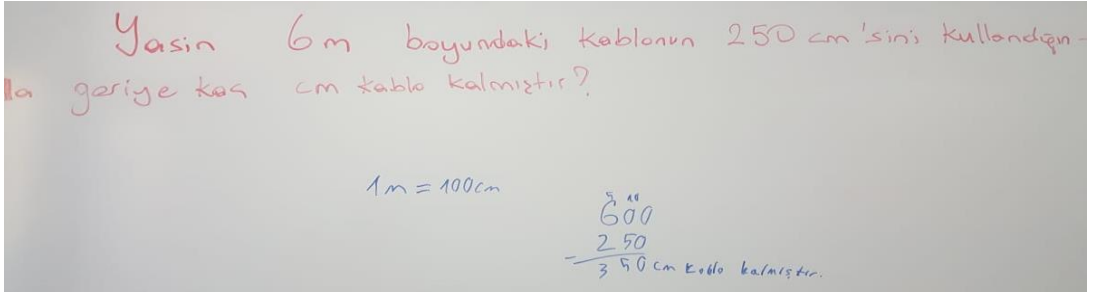 Yasin 6m boyundaki kablonun 250 cm'sini kullandığın-
da geriye kaç cm kablo kalmıştır?
1m = 100cm
5 10
600
250
- 350 cm kablo kalmıştır.